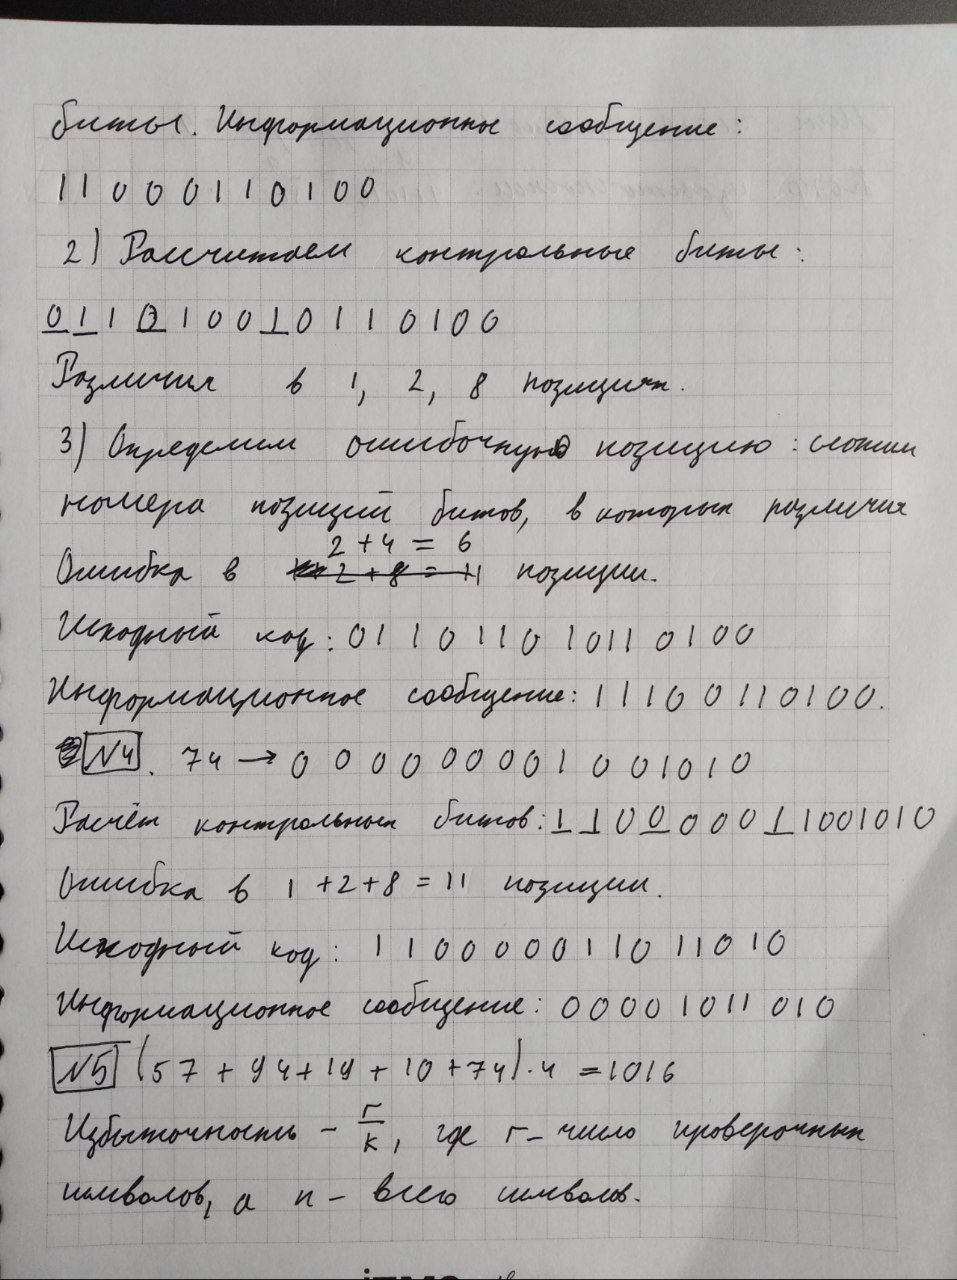 биты. Информационное сообщение:
11000110100
2) Рассчитаем контрольные биты:
011010010110100
Различия в 1, 2, 8 позициях.
3) Определим ошибочную позицию: сложим
номера позиций битов, в которых различия
2+4=6
Ошибка в 2+8=11 позиции.
Исходный код: 011011010110100
Информационное сообщение: 11100110100.
№4. 74 → 000000001001010
Расчёт контрольных битов: 110000011001010
Ошибка в 1+2+8=11 позиции.
Исходный код: 110000011011010
Информационное сообщение: 00001011010
№5 (57+94+19+10+74)·4=1016
Избыточность – r/k, где r – число проверочных
символов, а n – всего символов.